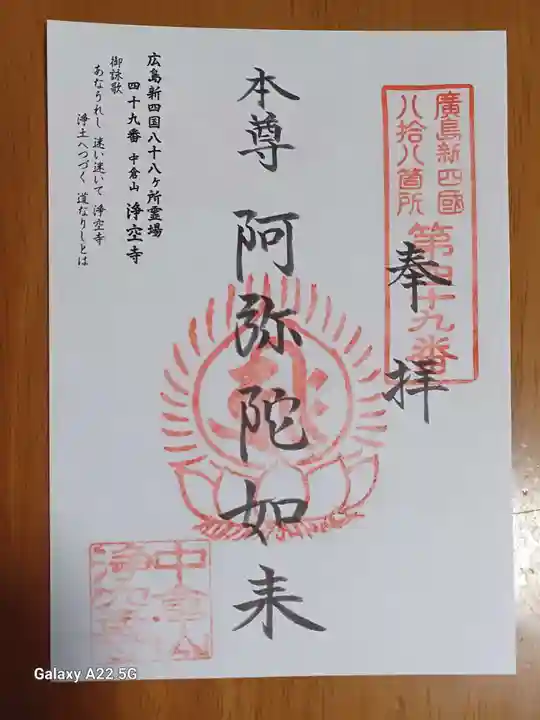 廣島新四國
八拾八箇所
第四十九番
奉拝
本尊 阿弥陀如来
広島新四国八十八ヶ所霊場
四十九番 中倉山 浄空寺
御詠歌
あなうれし 迷い迷いて 浄空寺
浄土へつづく 道なりしとは
中倉山
浄空寺
Galaxy A22 5G